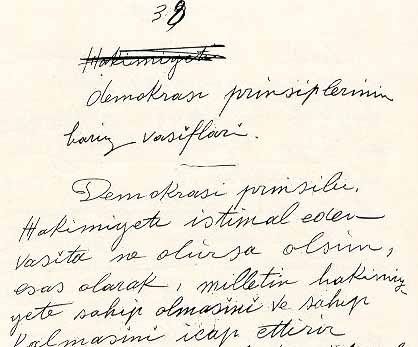 38
Hakimiyeti
demokrasi prinsiplerinin
bariz vasıfları.
Demokrasi prinsibi,
Hakimiyeti istimal eden
vasıta ne olursa olsun,
esas olarak, milletin hakimiy
yete sahip olmasını ve sahip
kalmasını icap ettirir